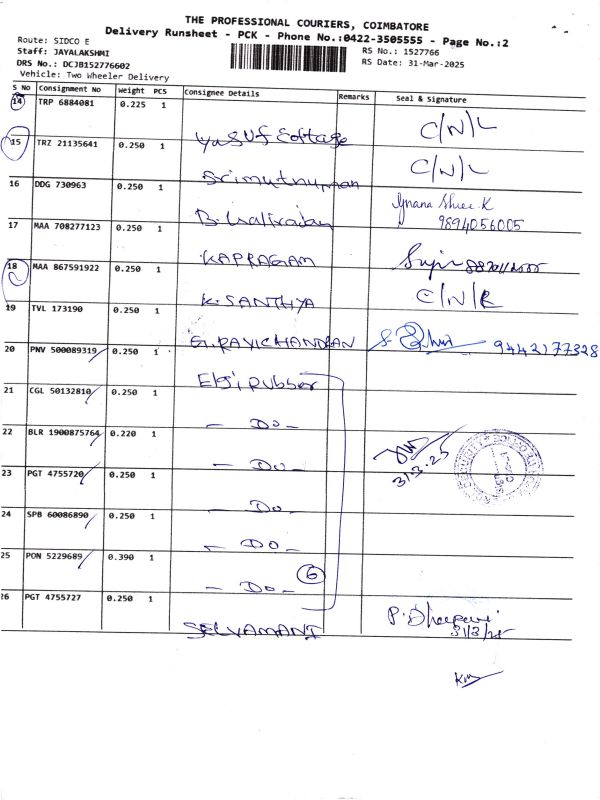 THE PROFESSIONAL COURIERS, COIMBATORE
Delivery Runsheet - PCK - Phone No.:0422-3505555 - Page No.:2
Route: SIDCO E
Staff: JAYALAKSHMI
DRS No.: DCJB152776602
Vehicle: Two Wheeler Delivery
RS No.: 1527766
RS Date: 31-Mar-2025
S No Consignment No Weight PCS Consignee Details Remarks Seal & Signature
14 TRP 6884081 0.225 1 Yusuf Cottage C/N/L
15 TRZ 21135641 0.250 1 Srimuthuman C/N/L
16 DDG 730963 0.250 1 B. Kalirajan Gnana Shree K
9894056005
17 MAA 708277123 0.250 1 KAPRAGAM
18 MAA 867591922 0.250 1 K. SANTHYA C/N/R
19 TVL 173190 0.250 1 G. RAVICHANDRAN 9442177328
20 PNV 500089319 0.250 1 Elgi Rubber
21 CGL 50132810 0.250 1 - Do -
22 BLR 1900875764 0.220 1 - Do - 31.3.25
23 PGT 4755720 0.250 1 - Do -
24 SPB 60086890 0.250 1 - Do -
25 PON 5229689 0.390 1 - Do - 6
26 PGT 4755727 0.250 1 SELVAMANI
31/3/25